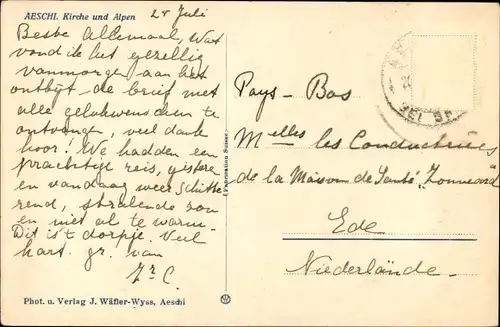 AESCHI. Kirche und Alpen
28 Juli
Beste Allemaal, Wat
vond ik het gezellig
vanmorgen aan het
ontbijt de brief met
alle gelukwenschen te
ontvangen, veel dank
hoor! We hadden een
prachtige reis, gisteren
en vandaag weer schitte
rend, stralende zon
en niet al te warm.
Dit is 't dorpje. Veel
hart. gr. van
Zr C.
Phot. u. Verlag J. Wäfler-Wyss, Aeschi
Fabrication Suisse
BEI
Pays-Bas
Melles les Conductrices
de la Maison de Santé, Zonneoord
Ede
Niederlände.